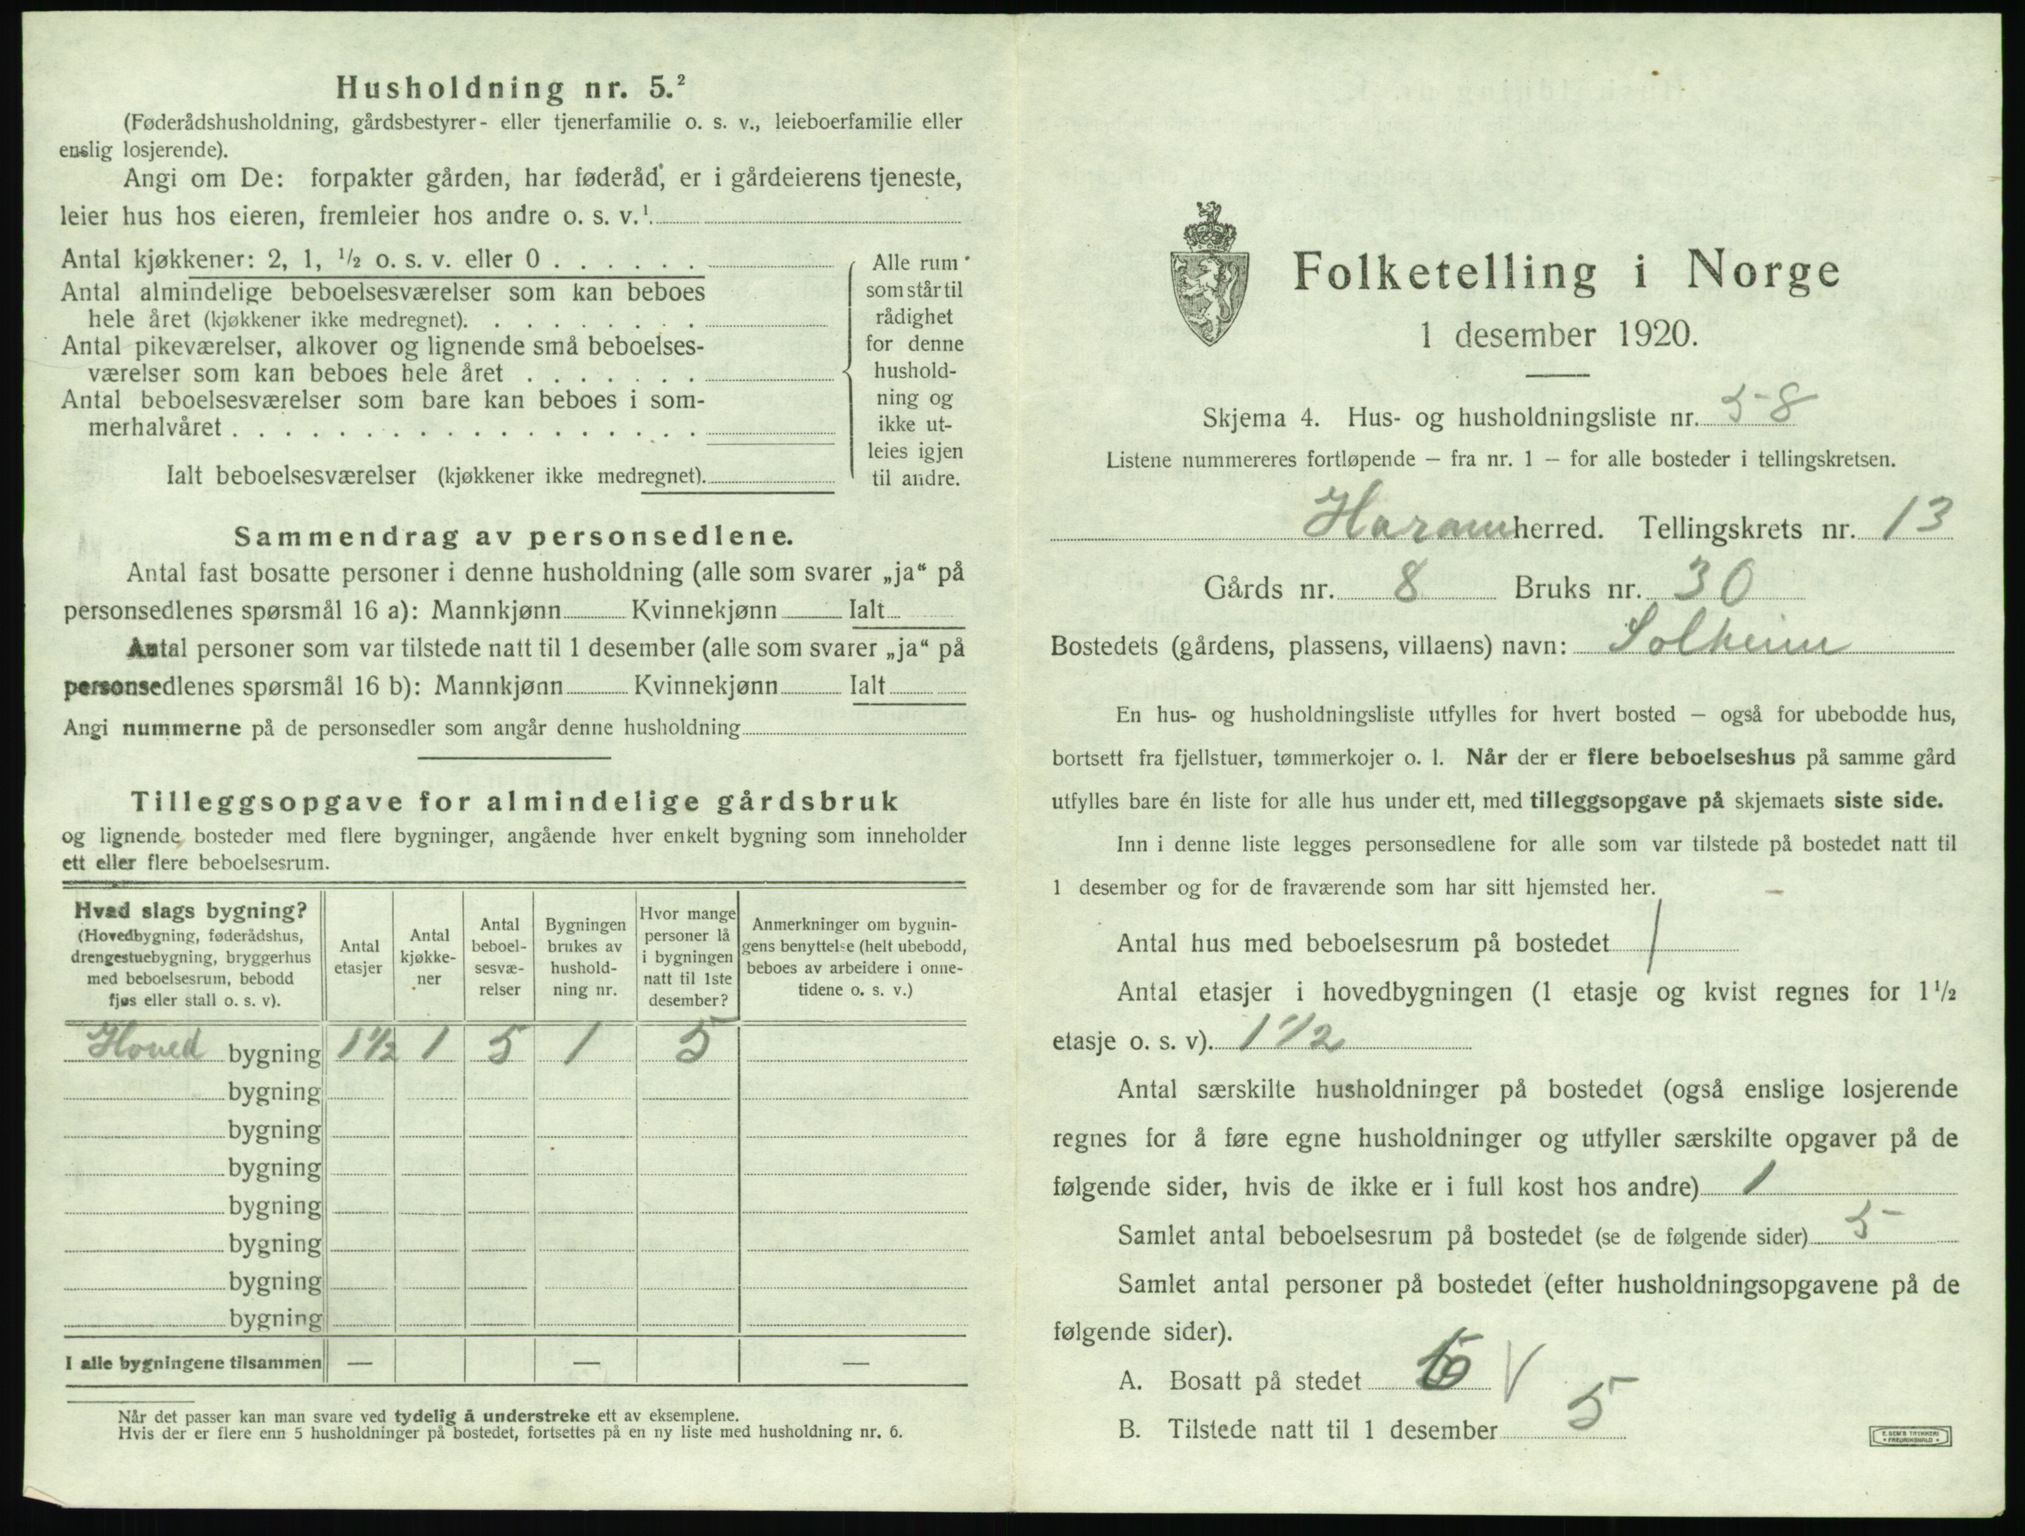 Husholdning nr. 5.²
(Føderådshusholdning, gårdsbestyrer- eller tjenerfamilie o. s. v., leieboerfamilie eller
enslig losjerende).
Angi om De: forpakter gården, har føderåd, er i gårdeierens tjeneste,
leier hus hos eieren, fremleier hos andre o. s. v.¹
Antal kjøkkener: 2, 1, ½ o. s. v. eller 0
Antal almindelige beboelsesværelser som kan beboes
hele året (kjøkkener ikke medregnet).
Antal pikeværelser, alkover og lignende små beboelses-
værelser som kan beboes hele året
Antal beboelsesværelser som bare kan beboes i som-
merhalvåret
Ialt beboelsesværelser (kjøkkener ikke medregnet).
Alle rum
som står til
rådighet
for denne
hushold-
ning og
ikke ut-
leies igjen
til andre.
Sammendrag av personsedlene.
Antal fast bosatte personer i denne husholdning (alle som svarer „ja“ på
personsedlenes spørsmål 16 a): Mannkjønn Kvinnekjønn Ialt
Antal personer som var tilstede natt til 1 desember (alle som svarer „ja“ på
personsedlenes spørsmål 16 b): Mannkjønn Kvinnekjønn Ialt
Angi nummerne på de personsedler som angår denne husholdning
Tilleggsopgave for almindelige gårdsbruk
og lignende bosteder med flere bygninger, angående hver enkelt bygning som inneholder
ett eller flere beboelsesrum.
Hvad slags bygning?
(Hovedbygning, føderådshus,
drengestuebygning, bryggerhus
med beboelsesrum, bebodd
fjøs eller stall o. s. v).
Antal
etasjer
Antal
kjøkke-
ner
Antal
beboel-
sesvæ-
relser
Bygningen
brukes av
hushold-
ning nr.
Hvor mange
personer lå
i bygningen
natt til 1ste
desember?
Anmerkninger om bygnin-
gens benyttelse (helt ubebodd,
beboes av arbeidere i onne-
tidene o. s. v.)
Hoved bygning 1½ 1 5 1 5
bygning
bygning
bygning
bygning
bygning
bygning
bygning
I alle bygningene tilsammen — — —
Når det passer kan man svare ved tydelig å understreke ett av eksemplene.
Hvis der er flere enn 5 husholdninger på bostedet, fortsettes på en ny liste med husholdning nr. 6.
Folketelling i Norge
1 desember 1920.
Skjema 4. Hus- og husholdningsliste nr. 58
Listene nummereres fortløpende — fra nr. 1 — for alle bosteder i tellingskretsen.
Haram herred. Tellingskrets nr. 13
Gårds nr. 8 Bruks nr. 30
Bostedets (gårdens, plassens, villaens) navn: Solheim
En hus- og husholdningsliste utfylles for hvert bosted — også for ubebodde hus,
bortsett fra fjellstuer, tømmerkojer o. l. Når der er flere beboelseshus på samme gård
utfylles bare én liste for alle hus under ett, med tilleggsopgave på skjemaets siste side.
Inn i denne liste legges personsedlene for alle som var tilstede på bostedet natt til
1 desember og for de fraværende som har sitt hjemsted her.
Antal hus med beboelsesrum på bostedet 1
Antal etasjer i hovedbygningen (1 etasje og kvist regnes for 1½
etasje o. s. v). 1½
Antal særskilte husholdninger på bostedet (også enslige losjerende
regnes for å føre egne husholdninger og utfyller særskilte opgaver på de
følgende sider, hvis de ikke er i full kost hos andre) 1
Samlet antal beboelsesrum på bostedet (se de følgende sider) 5
Samlet antal personer på bostedet (efter husholdningsopgavene på de
følgende sider).
A. Bosatt på stedet 6 V
B. Tilstede natt til 1 desember 5
E. SEM'S TRYKKERI
FREDRIKSHALD